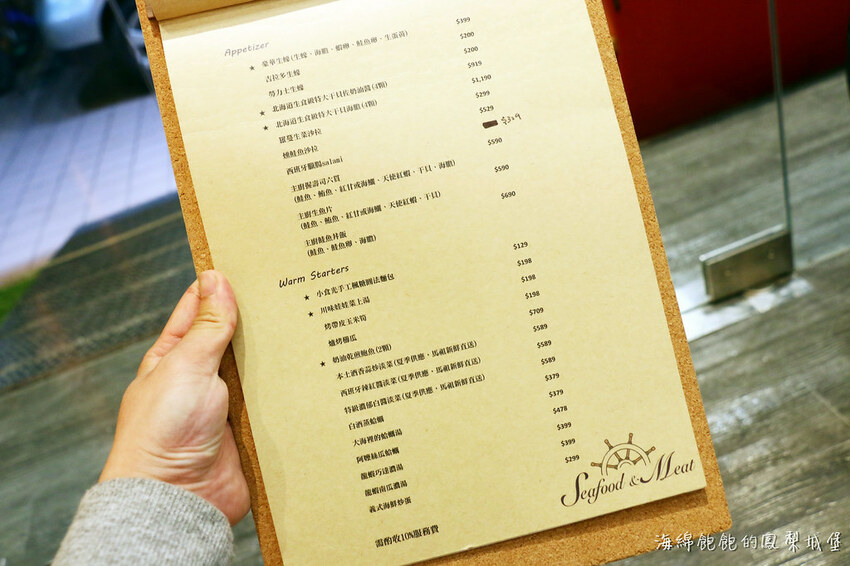 Appetizer
★ 豪華生蠔(生蠔、海膽、蝦卵、鮭魚卵、生蛋黃) $399
吉拉多生蠔 $200
勞力士生蠔 $200
★ 北海道生食級特大干貝佐奶油醬(4顆) $919
★ 北海道生食級特大干貝海膽(4顆) $1,190
羅曼生菜沙拉 $299
燻鮭魚沙拉 $529
西班牙臘腸salami $329
主廚握壽司六貫 $590
(鮭魚、鮪魚、紅甘或海鱺、天使紅蝦、干貝、海膽)
主廚生魚片 $590
(鮭魚、鮪魚、紅甘或海鱺、天使紅蝦、干貝)
主廚鮭魚丼飯 $690
(鮭魚、鮭魚卵、海膽)
Warm Starters
★ 小食光手工楓糖圓法麵包 $129
★ 川味娃娃菜上湯 $198
烤帶皮玉米筍 $198
爐烤櫛瓜 $198
★ 奶油乾煎鮑魚(2顆) $709
本土酒香蒜炒淡菜(夏季供應，馬祖新鮮直送) $589
西班牙辣紅醬淡菜(夏季供應，馬祖新鮮直送) $589
特級濃郁白醬淡菜(夏季供應，馬祖新鮮直送) $589
白酒蒸蛤蠣 $379
大海裡的蛤蠣湯 $379
阿嬤絲瓜蛤蠣 $478
龍蝦巧達濃湯 $399
龍蝦南瓜濃湯 $399
義式海鮮炒蛋 $299
需酌收10%服務費
Seafood & Meat
海綿飽飽的鳳梨城堡